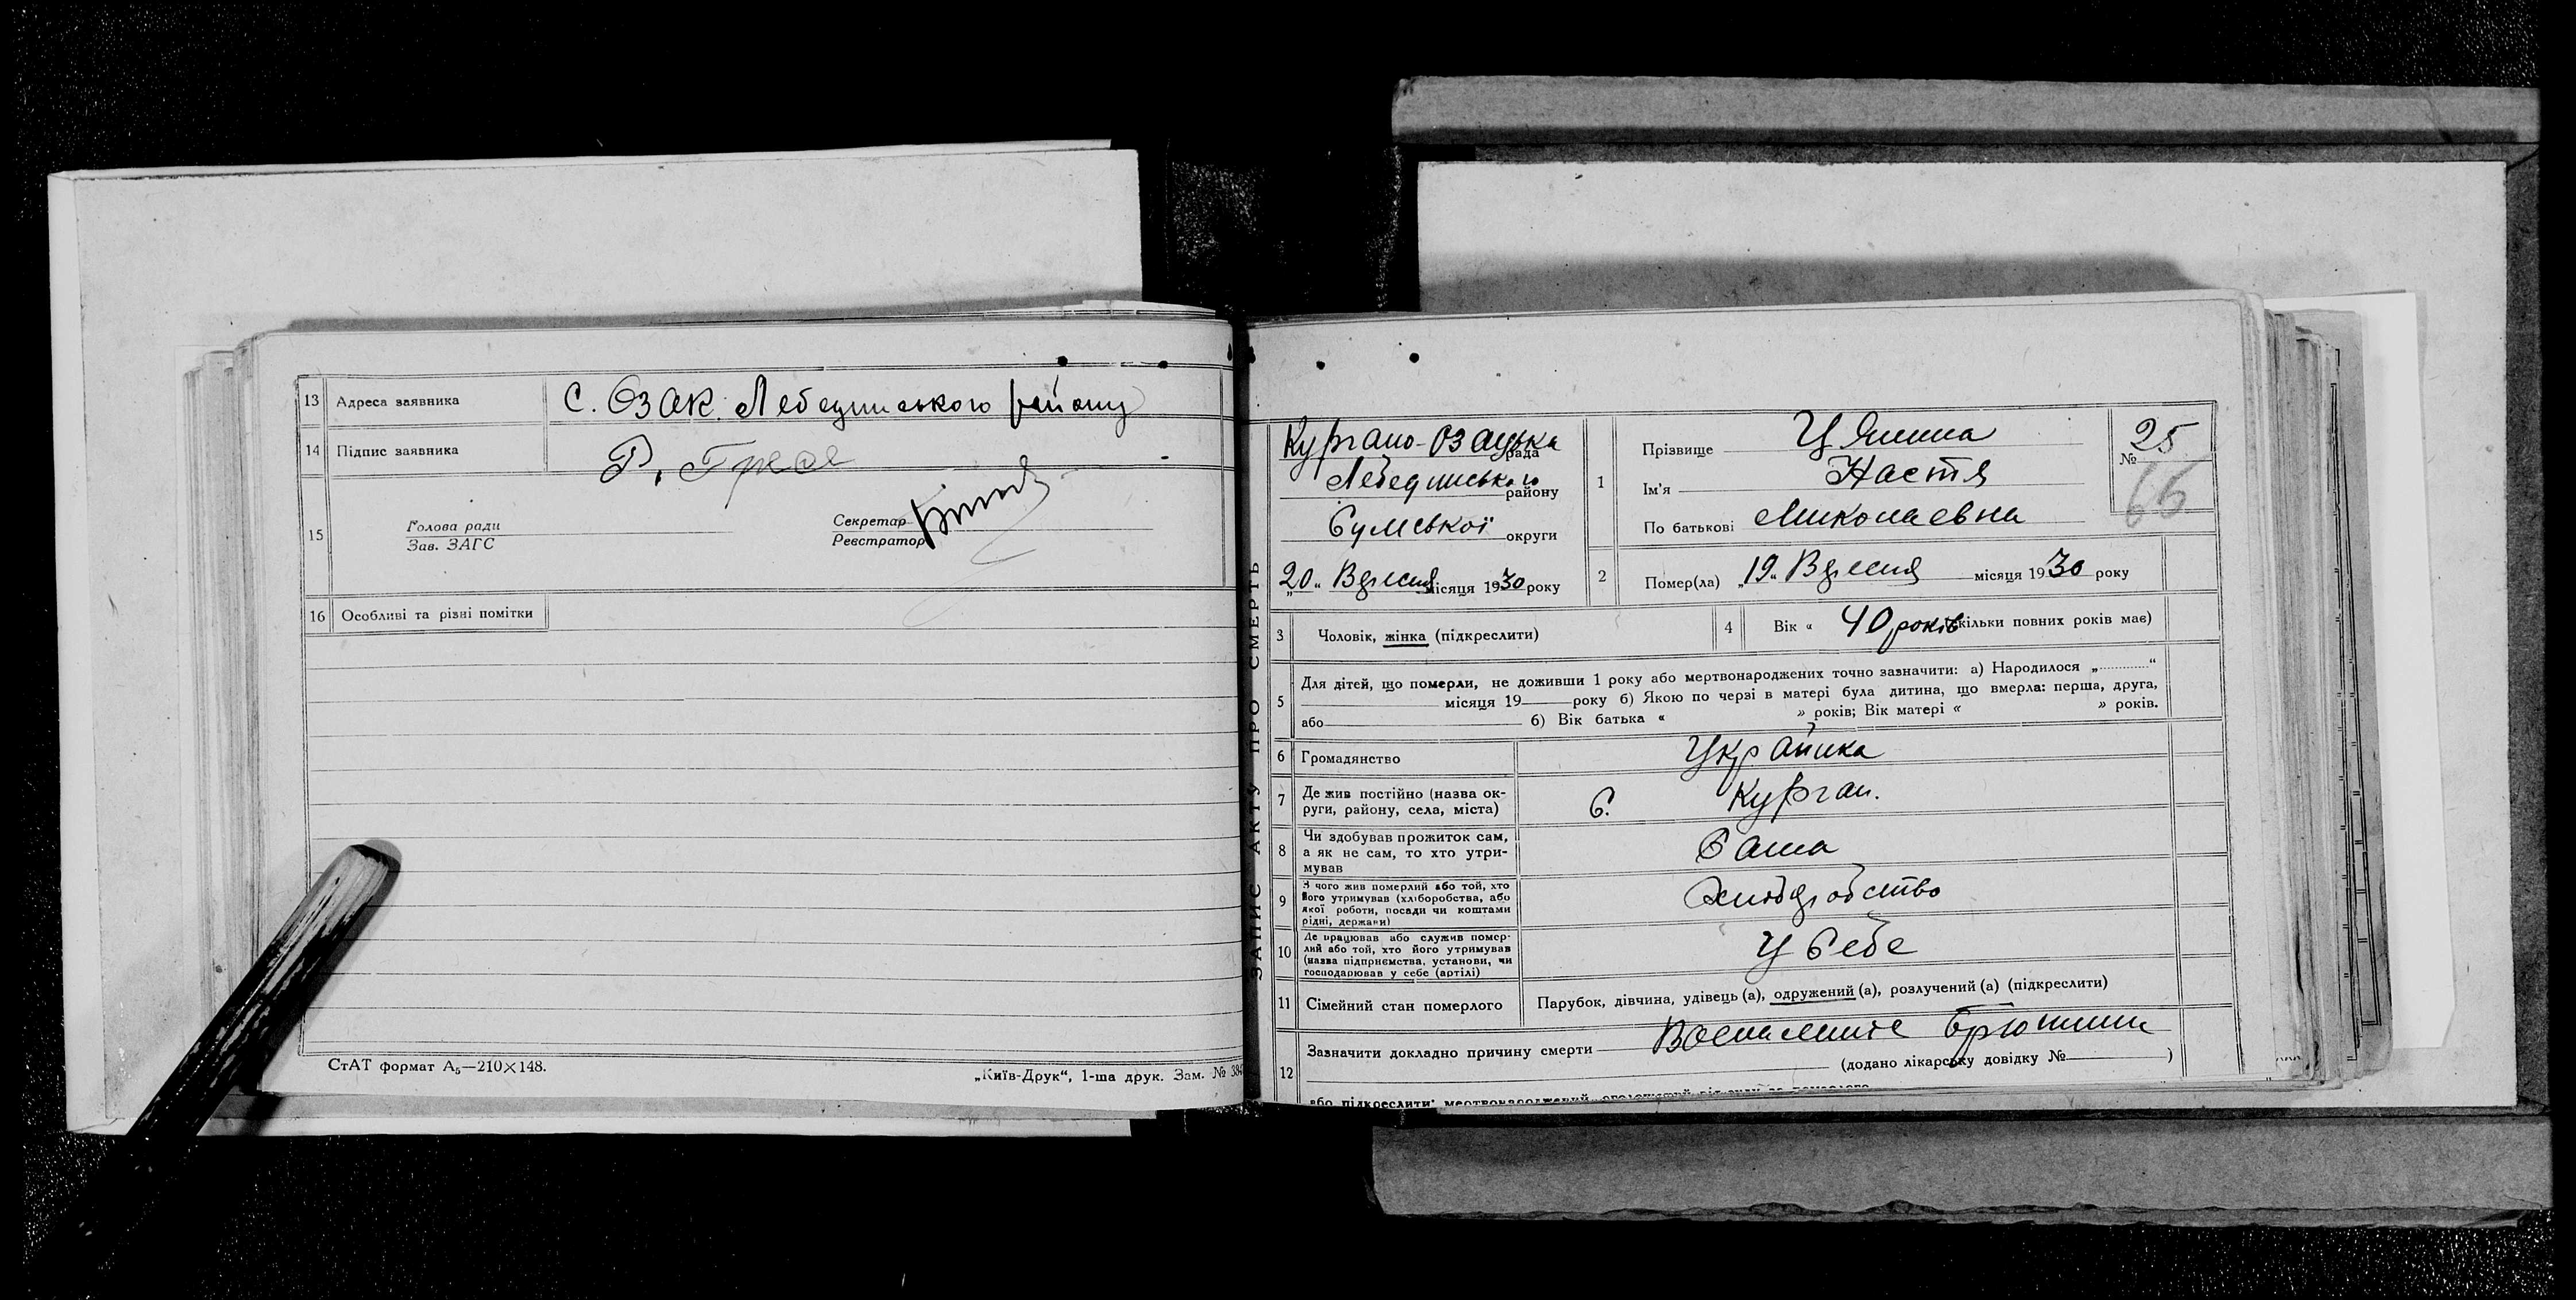 13 Адреса заявника С. Озак. Лебединського району
14 Підпис заявника Р.
15 Голова ради
Зав. ЗАГС
Секретар
Реєстратор
16 Особливі та різні помітки
СтАТ формат А₅—210×148.
„Київ-Друк“, 1-ша друк. Зам. № 384
ЗАПИС АКТУ ПРО СМЕРТЬ
Кургано-Озацька
рада
Лебединського
району
Сумської
округи
„20“ Вересня місяця 1930 року
1 Прізвище
Ім'я Настя
По батькові Миколаевна
№ 25
66
2 Помер(ла) „19“ Вересня місяця 1930 року
3 Чоловік, жінка (підкреслити)
4 Вік « 40 років кільки повних років має)
5 Для дітей, що померли, не доживши 1 року або мертвонароджених точно зазначити: а) Народилося „ “
місяця 19 року б) Якою по черзі в матері була дитина, що вмерла: перша, друга,
або б) Вік батька « » років; Вік матері « » років.
6 Громадянство Українка
7 Де жив постійно (назва ок-
руги, району, села, міста) С. Курган.
8 Чи здобував прожиток сам,
а як не сам, то хто утри-
мував Сама
9 З чого жив померлий або той, хто
його утримував (хліборобства, або
якої роботи, посади чи коштами
рідні, держави) Хліборобство
10 Де працював або служив помер-
лий або той, хто його утримував
(назва підприємства, установи, чи
господарював у себе (артілі) У Себе
11 Сімейний стан померлого Парубок, дівчина, удівець (а), одружений (а), розлучений (а) (підкреслити)
12 Зазначити докладно причину смерти Воспаление брюшини
(додано лікарську довідку № )
або підкреслити: мертвонароджений,